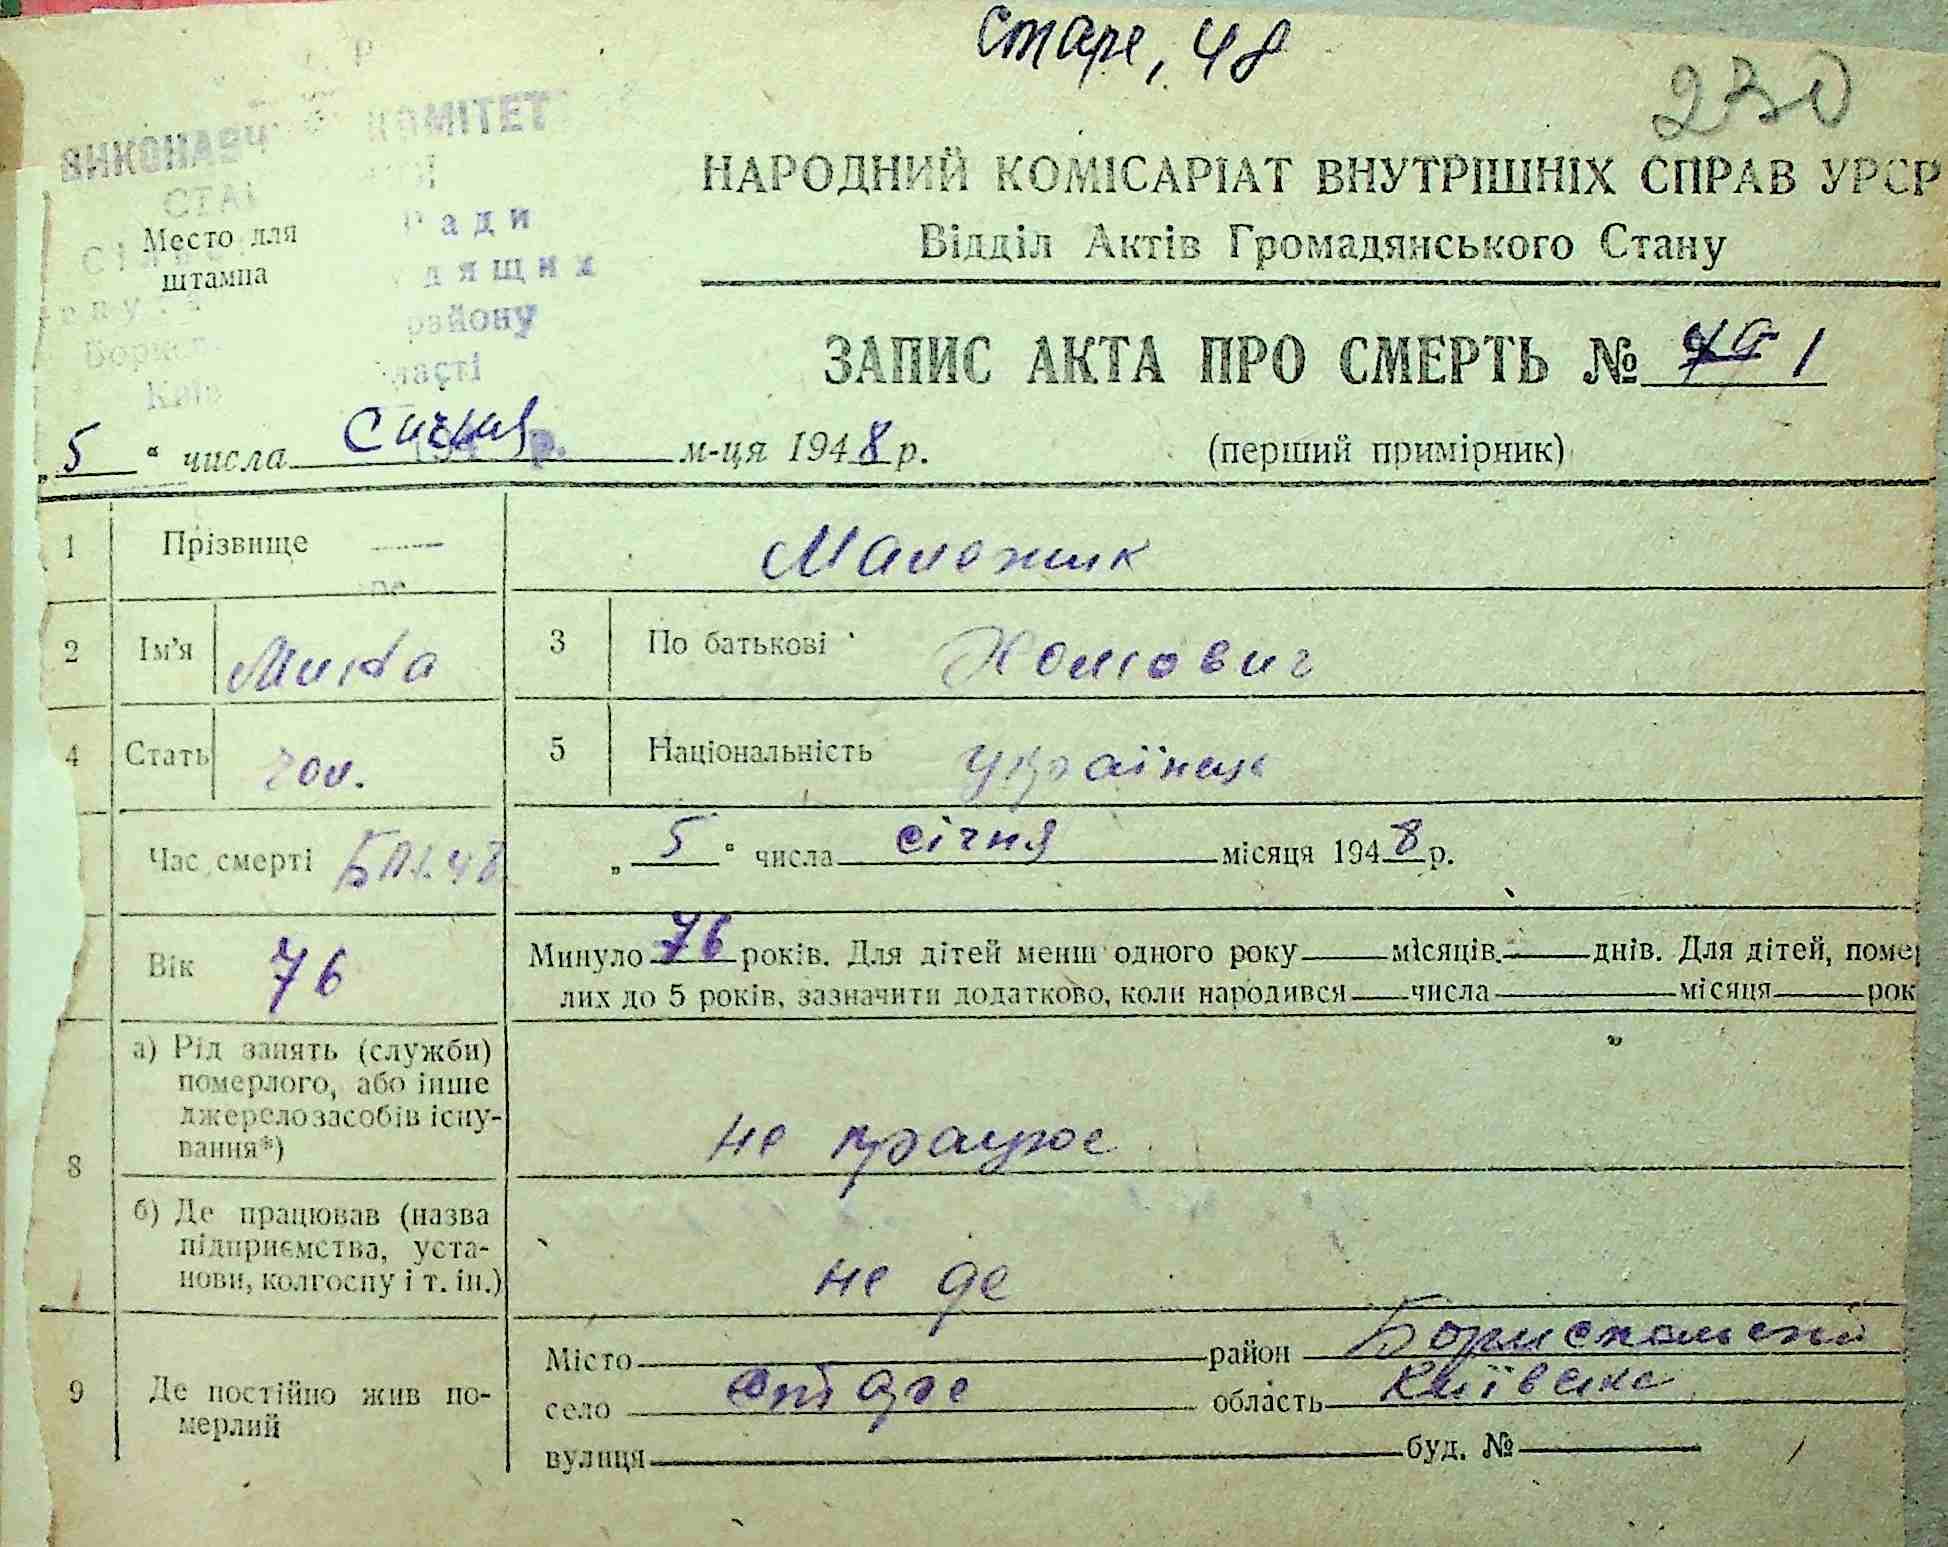 Старе, 48
230
ВИКОНАВЧ КОМІТЕТ
Ради
дящих
району
Місто для
штампа
НАРОДНИЙ КОМІСАРІАТ ВНУТРІШНІХ СПРАВ УРСР
Відділ Актів Громадянського Стану
ЗАПИС АКТА ПРО СМЕРТЬ № 1
„ 5 “ числа січня м-ця 1948 р. (перший примірник)
1 Прізвище Маложик
2 Ім'я Микита 3 По батькові Хомович
4 Стать чол. 5 Національність українець
Час смерті 5/І.48 „ 5 “ числа січня місяця 1948 р.
Вік 76 Минуло 76 років. Для дітей менш одного року місяців. днів. Для дітей, помер
лих до 5 років, зазначити додатково, коли народився числа місяця рок
8 а) Рід занять (служби)
померлого, або інше
джерело засобів існу-
вання*) не працює
б) Де працював (назва
підприємства, уста-
нови, колгоспу і т. ін.) не де
9 Де постійно жив по-
мерлий
Місто район Бориспольский
село Старе область Київська
вулиця буд. №